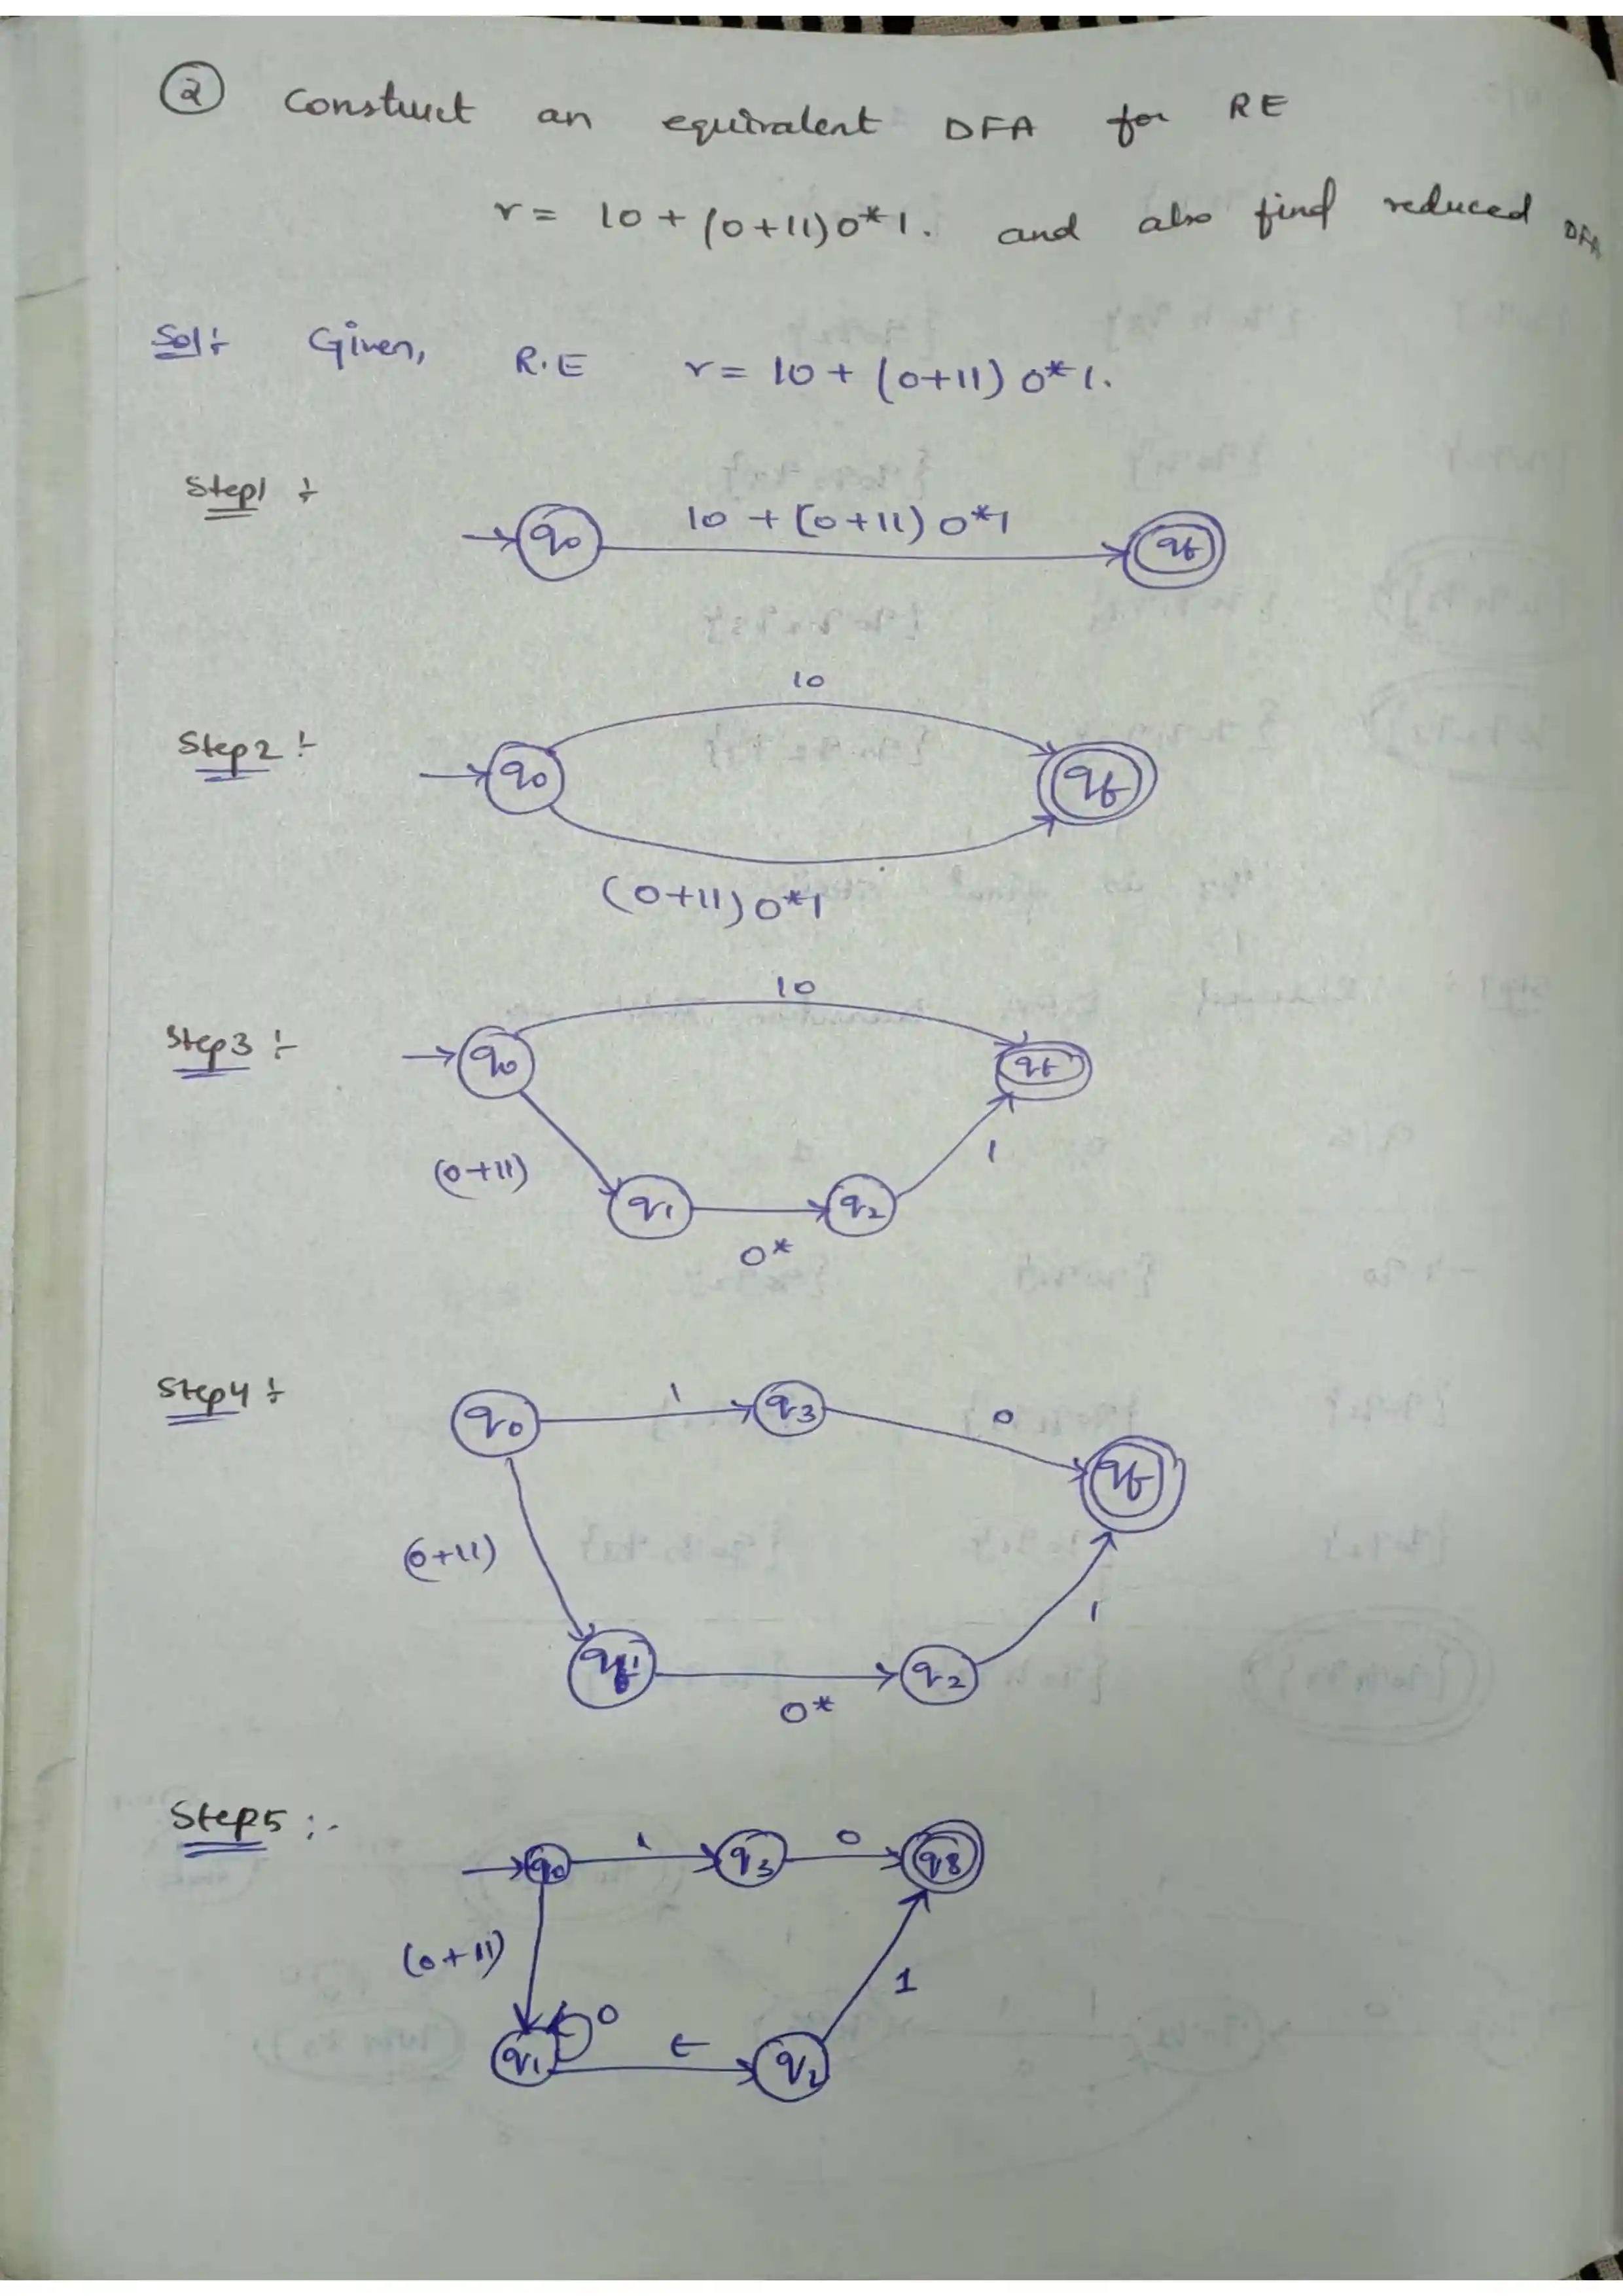 ② Construct an equivalent DFA for RE
r = 10 + (0+11)0*1. and also find reduced DFA
Sol:- Given, R.E r = 10 + (0+11) 0*1.
Step1 :-
q0 10 + (0+11) 0*1 qf
10
Step2 :-
q0 qf
(0+11) 0*1
10
Step3 :-
q0 qf
(0+11) 1
q1 q2
0*
Step4 :-
q0 1 q3 0
qf
(0+11)
1
q1 q2
0*
Step5 :-
q0 1 q3 0 q8
(0+11)
1
0
q1 ε q2